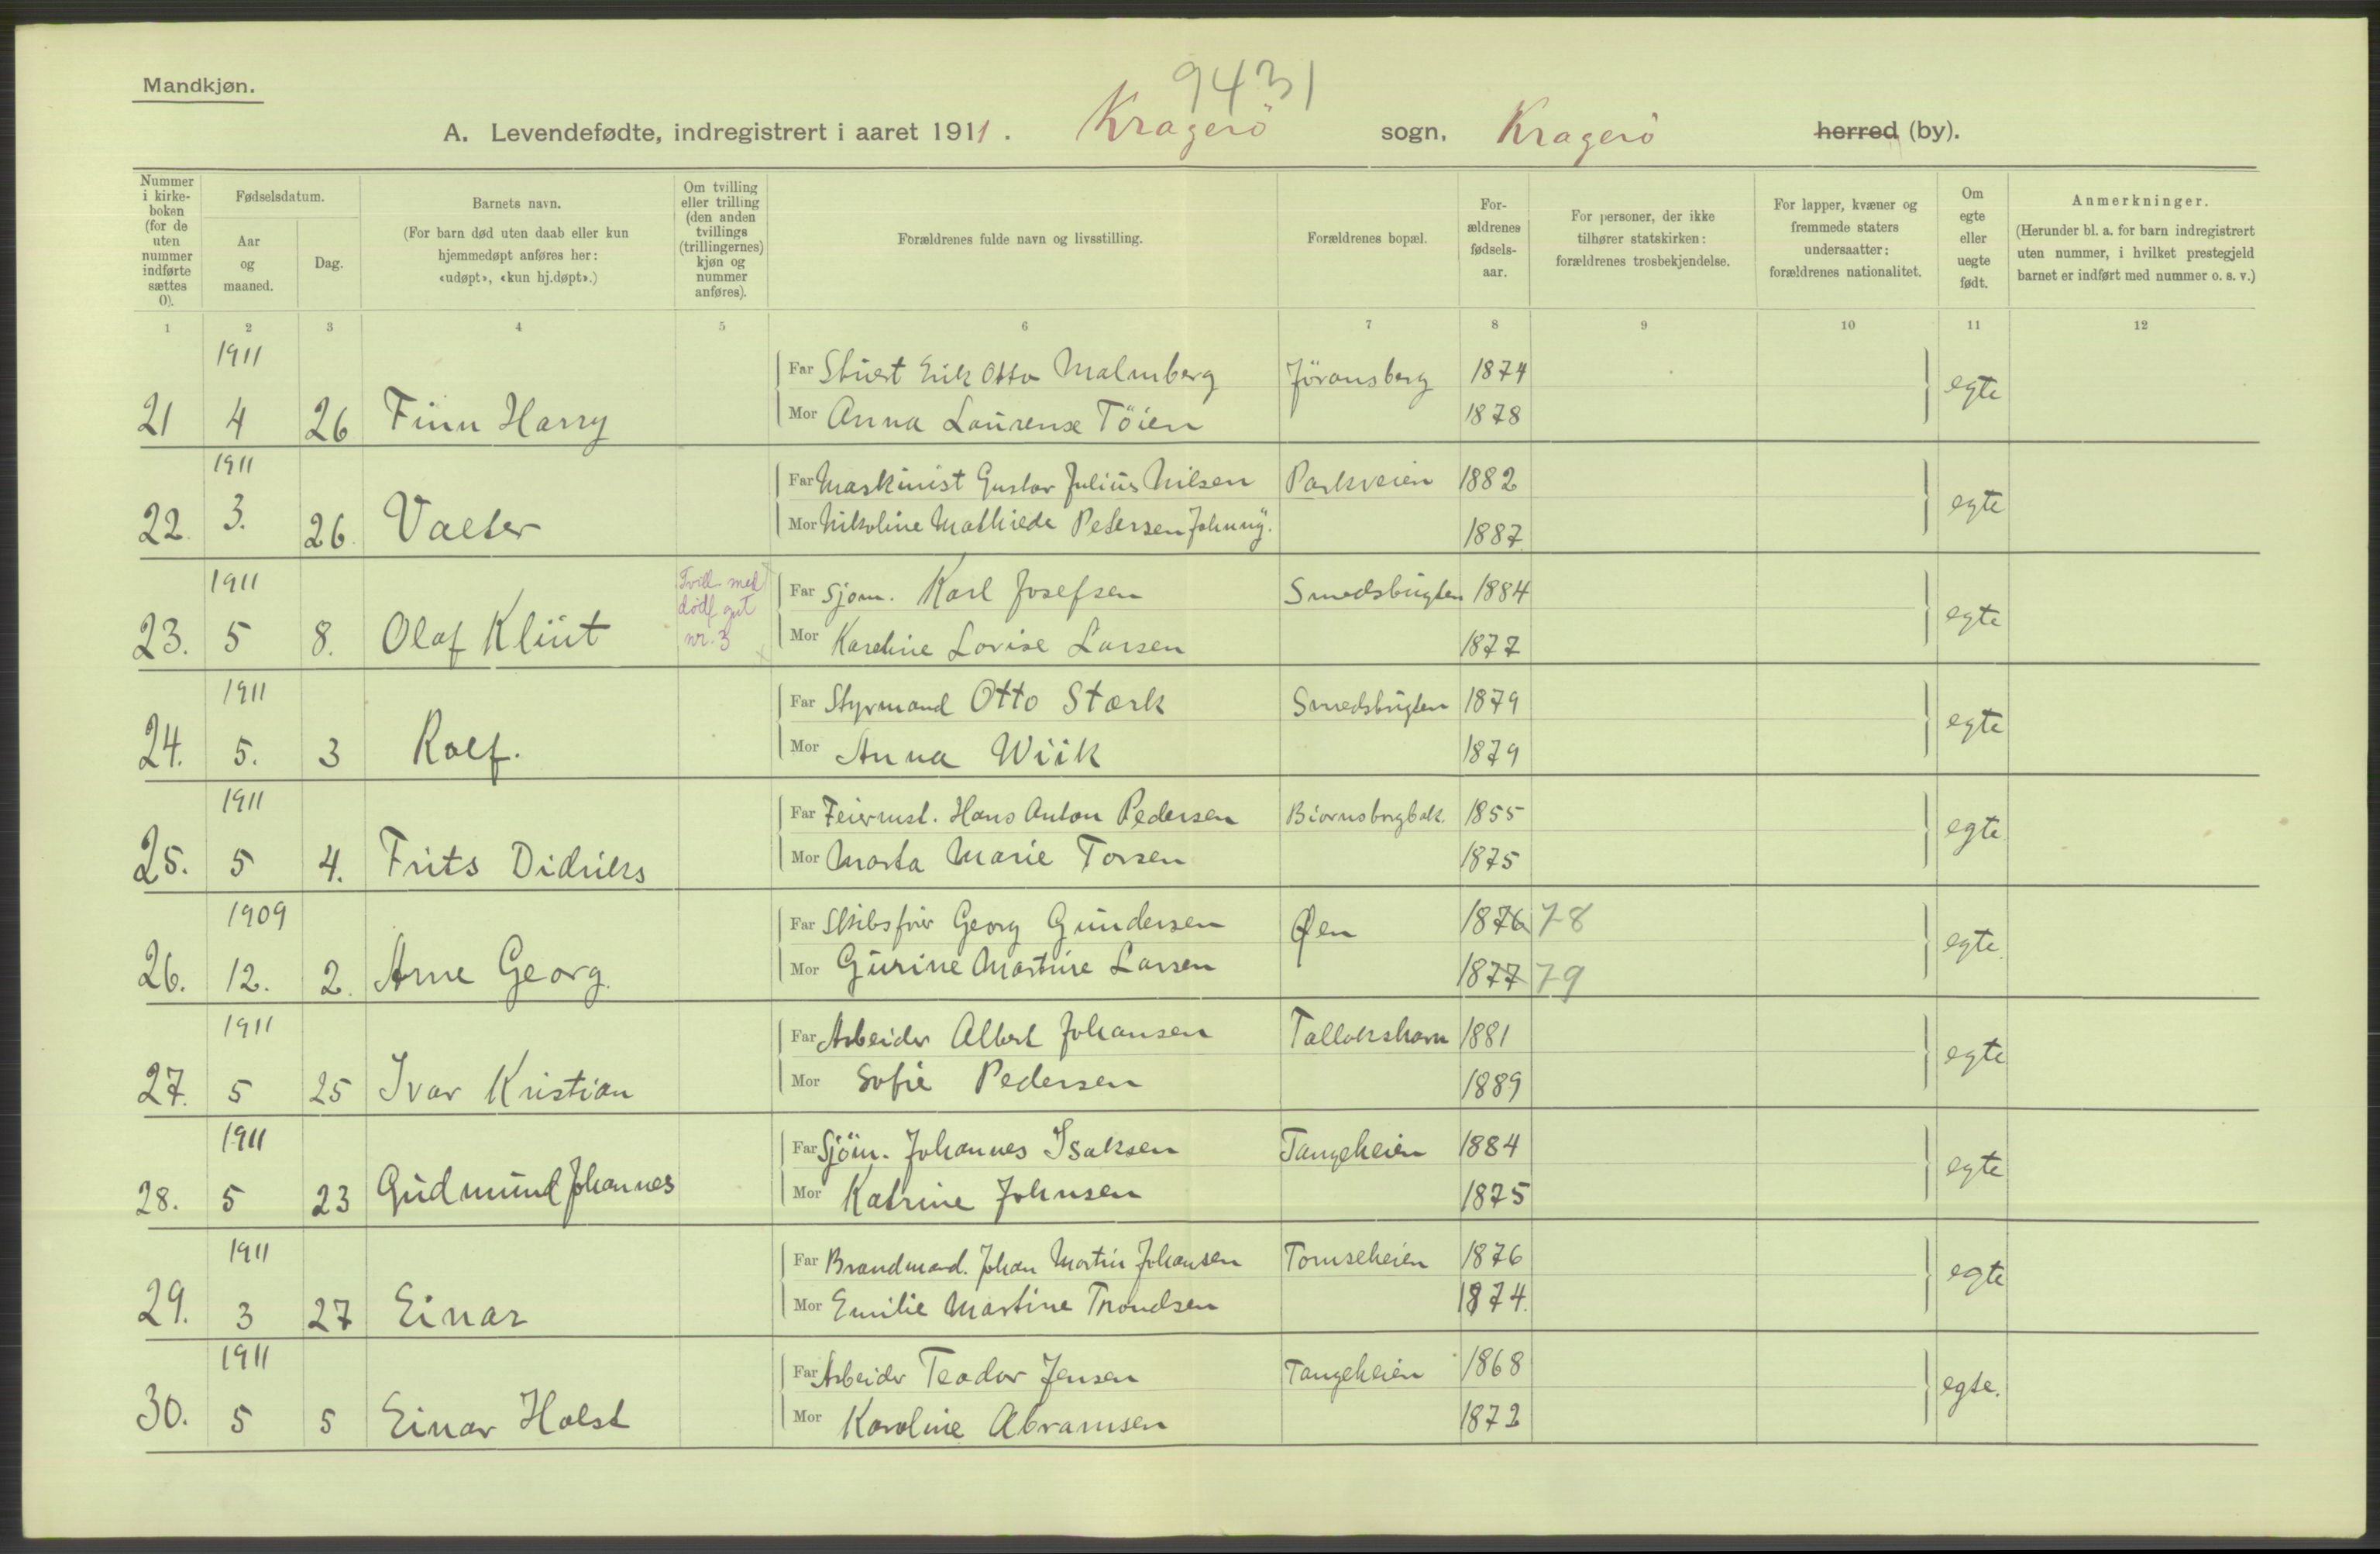 9431
Mandkjøn.
A. Levendefødte, indregistrert i aaret 1911. Kragerö sogn, Kragerö herred (by).
Nummer i kirke-boken (for de uten nummer indførte sættes 0).
Fødselsdatum.
Aar og maaned.
Dag.
Barnets navn.
(For barn død uten daab eller kun hjemmedøpt anføres her: «udøpt», «kun hj.døpt».)
Om tvilling eller trilling (den anden tvillings (trillingernes) kjøn og nummer anføres).
Forældrenes fulde navn og livsstilling.
Forældrenes bopæl.
For-ældrenes fødsels-aar.
For personer, der ikke tilhører statskirken: forældrenes trosbekjendelse.
For lapper, kvæner og fremmede staters undersaatter: forældrenes nationalitet.
Om egte eller uegte født.
Anmerkninger.
(Herunder bl. a. for barn indregistrert uten nummer, i hvilket prestegjeld barnet er indført med nummer o. s. v.)
1 2 3 4 5 6 7 8 9 10 11 12
1911 Far Erik Otto Malmberg Jöransberg 1874 egte
21 4 26 Finn Harry Mor Anna Laurense Töien 1878
1911 Far Maskinist Gustav Julius Nilsen Parkveien 1882 egte
22. 3. 26 Valter Mor Nikoline Mathilde Petersen 1887
1911 Tvill med dødf gut nr. 3 Far Sjöm. Karl Josefsen Smedsbugten 1884 egte
23. 5 8. Olaf Klint Mor Karoline Lovise Larsen 1877
1911 Far Styrmand Otto Stærk Smedsbugten 1879 egte
24. 5. 3 Rolf. Mor Anna Wiik 1879
1911 Far Feiermst. Hans Anton Pedersen Biornsborgbak. 1855 egte
25. 5 4. Frits Didriks Mor Marta Marie Torsen 1875
1909 Far Skibsförer Georg Gundersen Øen 1876 78 egte
26. 12. 2. Arne Georg. Mor Gurine Martine Larsen 1877 79
1911 Far Arbeider Albert Johansen Tallakshavn 1881 egte
27. 5 25 Ivar Kristian Mor Sofie Pedersen 1889
1911 Far Sjöm. Johannes Isaksen Tangeheien 1884 egte
28. 5 23 Gudmund Johannes Mor Katrine Johnsen 1875
1911 Far Brandmand. Johan Martin Johansen Tomseheien 1876 egte
29. 3 27 Einar Mor Emilie Martine Trondsen 1874.
1911 Far Arbeider Teodor Jensen Tangeheien 1868 egte.
30. 5 5 Einar Holst Mor Karoline Abramsen 1872